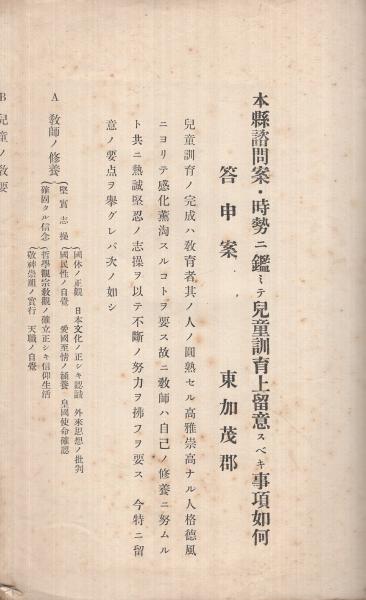 本縣諮問案・時勢ニ鑑ミテ兒童訓育上留意スベキ事項如何
答申案
東加茂郡
兒童訓育ノ完成ハ教育者其ノ人ノ圓熟セル高雅崇高ナル人格德風
ニヨリテ感化薫淘スルコトヲ要ス故ニ教師ハ自己ノ修養ニ努ムル
ト共ニ熱誠堅忍ノ志操ヲ以テ不斷ノ努力ヲ拂フヲ要ス 今特ニ留
意ノ要点ヲ擧グレバ次ノ如シ
A 教師ノ修養
堅實志操
國体ノ正觀 日本文化ノ正シキ認識 外來思想ノ批判
國民性ノ自覺 愛國至情ノ涵養 皇國使命確認
確固タル信念
哲學觀宗敎觀ノ確立正シキ信仰生活
敬神崇祖ノ實行 天職ノ自覺
B 兒童ノ敎要